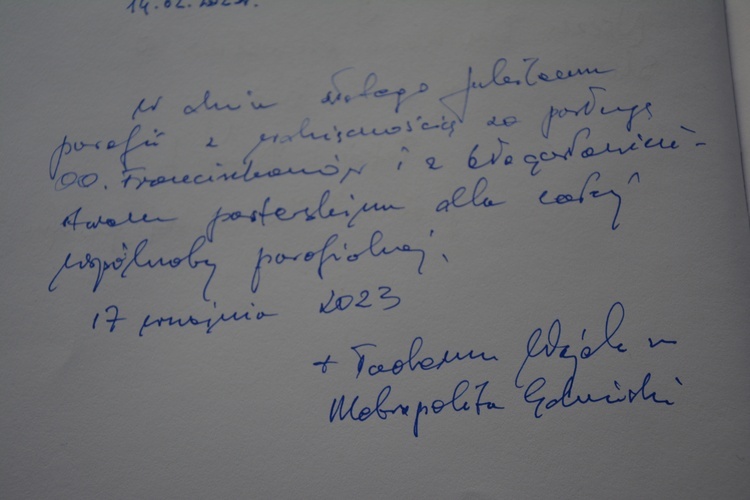 14.02.2023r.
W dniu złotego jubileuszu
parafii z wdzięcznością za posługę
OO. Franciszkanów i z błogosławień-
stwem pasterskim dla całej
wspólnoty parafialnej.
17 września 2023
+ Tadeusz Wojda
Metropolita Gdański